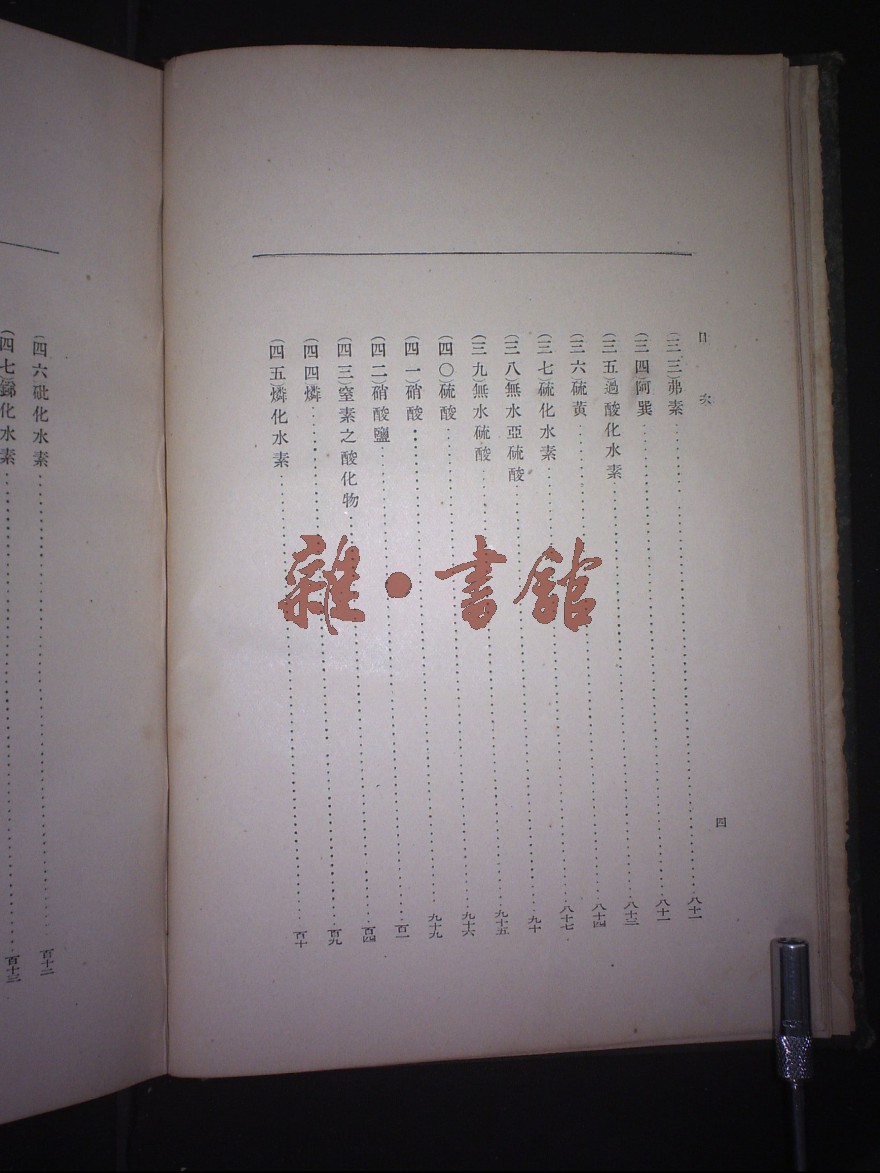 目次
(三三)弗素……八十一
(三四)阿巽……八十一
(三五)過酸化水素……八十三
(三六)硫黄……八十四
(三七)硫化水素……八十七
(三八)無水亞硫酸……九十
(三九)無水硫酸……九十五
(四〇)硫酸……九十六
(四一)硝酸……九十九
(四二)硝酸鹽……百一
(四三)窒素之酸化物……百四
(四四)燐……百九
(四五)燐化水素……百十
四
(四六)砒化水素……百十二
(四七)銻化水素……百十三
雜·書館